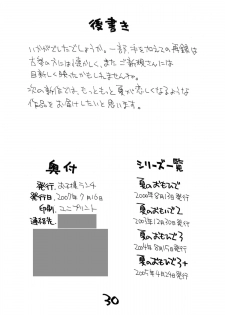 後書き
いかがでしたでしょうか。一部、手を加えての再録は
古参の方には懐かしく、またご新規さんには
目新しく映ったかもしれませんね。
次の新作では、もっともっと夏が恋しくなるような
作品をお届けしたいと思います。
奥付
発行. お子様ランチ
発行日. 2007年7月16日
印刷. ユニプリント
連絡先.
シリーズ一覧
夏のおもひで
2000年8月13日発行
夏のおもひで2
2003年12月30日発行
夏のおもひで3
2004年8月15日発行
夏のおもひで3+
2005年4月29日発行
30